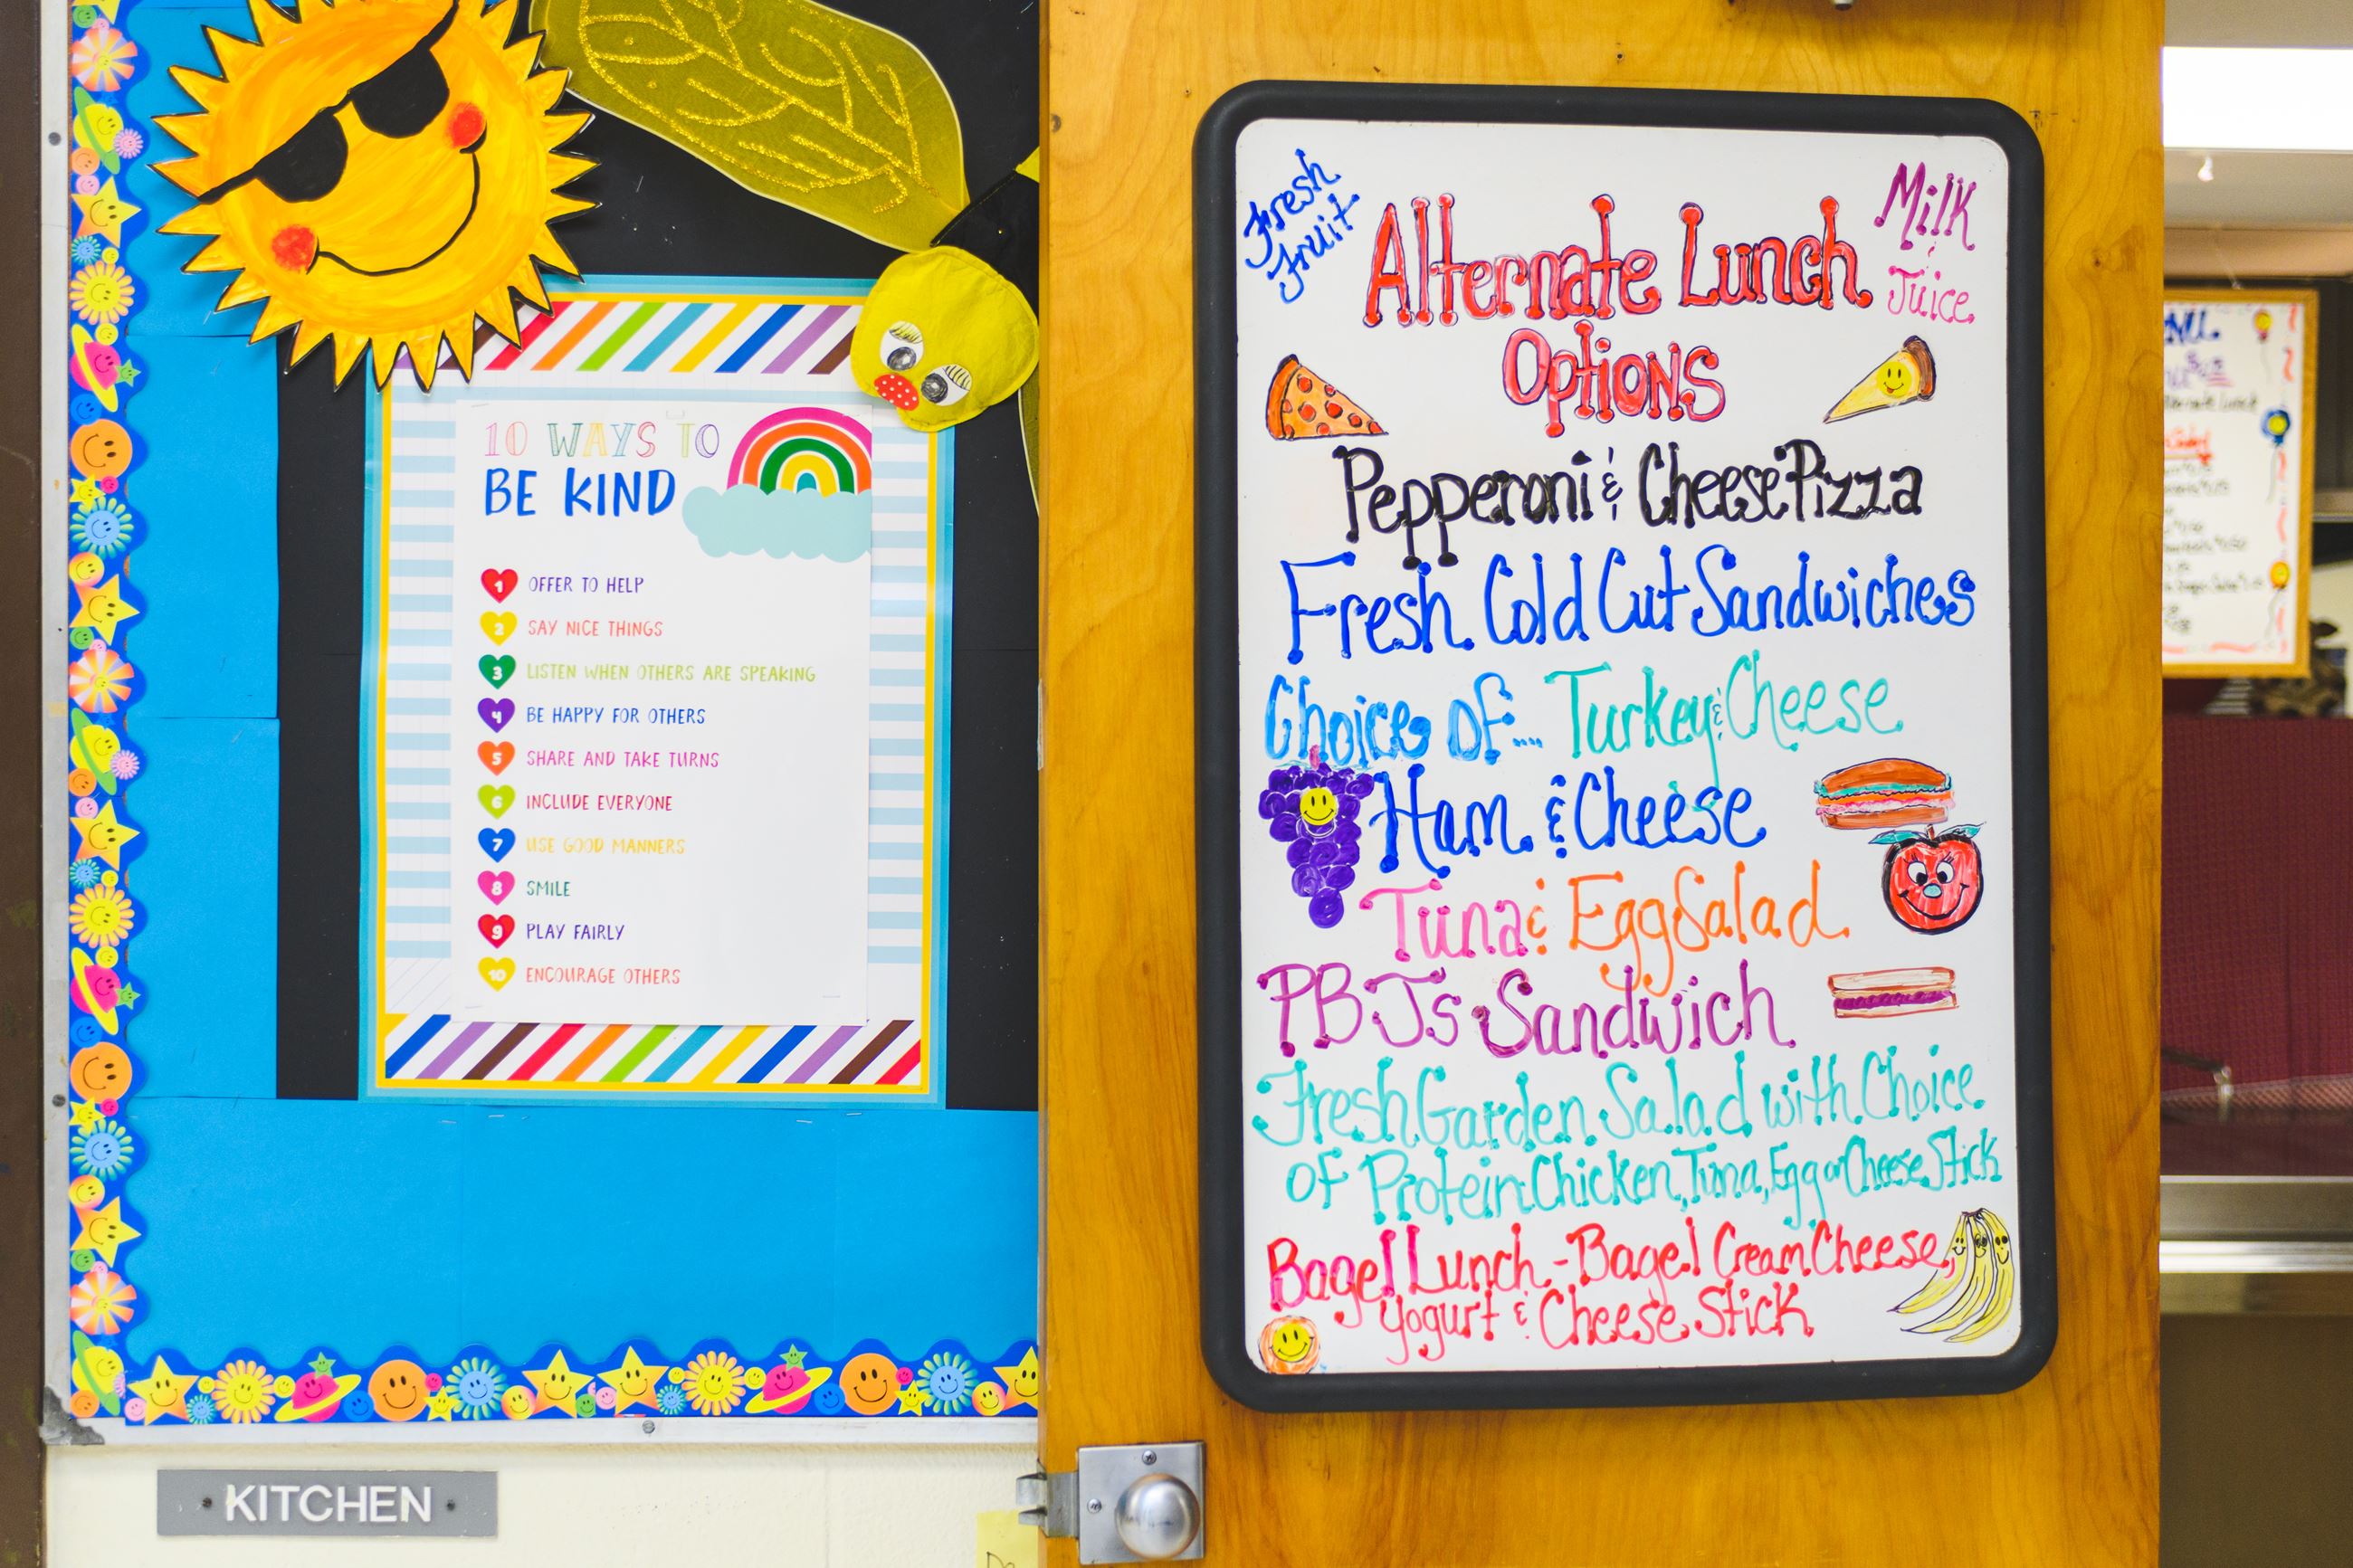 10 WAYS TO
BE KIND
1 OFFER TO HELP
2 SAY NICE THINGS
3 LISTEN WHEN OTHERS ARE SPEAKING
4 BE HAPPY FOR OTHERS
5 SHARE AND TAKE TURNS
6 INCLUDE EVERYONE
7 USE GOOD MANNERS
8 SMILE
9 PLAY FAIRLY
10 ENCOURAGE OTHERS
KITCHEN
Fresh
Fruit
Milk
&
Juice
Alternate Lunch
Options
Pepperoni & Cheese Pizza
Fresh Cold Cut Sandwiches
Choice of.... Turkey & Cheese
Ham & Cheese
Tuna & Egg Salad
PBJs Sandwich
Fresh Garden Salad with Choice
of Protein: Chicken, Tuna, Egg or Cheese Stick
Bagel Lunch - Bagel Cream Cheese,
Yogurt & Cheese Stick